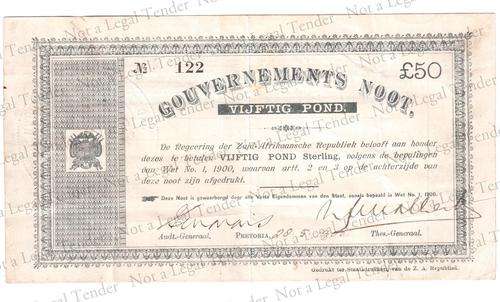 № 122 £50
GOUVERNEMENTS NOOT,
VIJFTIG POND.
De Regeering der Zuid-Afrikaansche Republiek belooft aan houder
dezes te betalen VIJFTIG POND Sterling, volgens de bepalingen
van Wet No. 1, 1900, waarvan artt. 2 en 3 op de achterzijde van
deze noot zijn afgedrukt.
Deze Noot is gewaarborgd door alle Vaste Eigendommen van den Staat, zooals bepaald in Wet No. 1, 1900.
Audt.-Generaal. PRETORIA 28 5 Thes.-Generaal.
Gedrukt ter Staatsdrukkerij van de Z. A. Republiek.
Not a Legal Tender